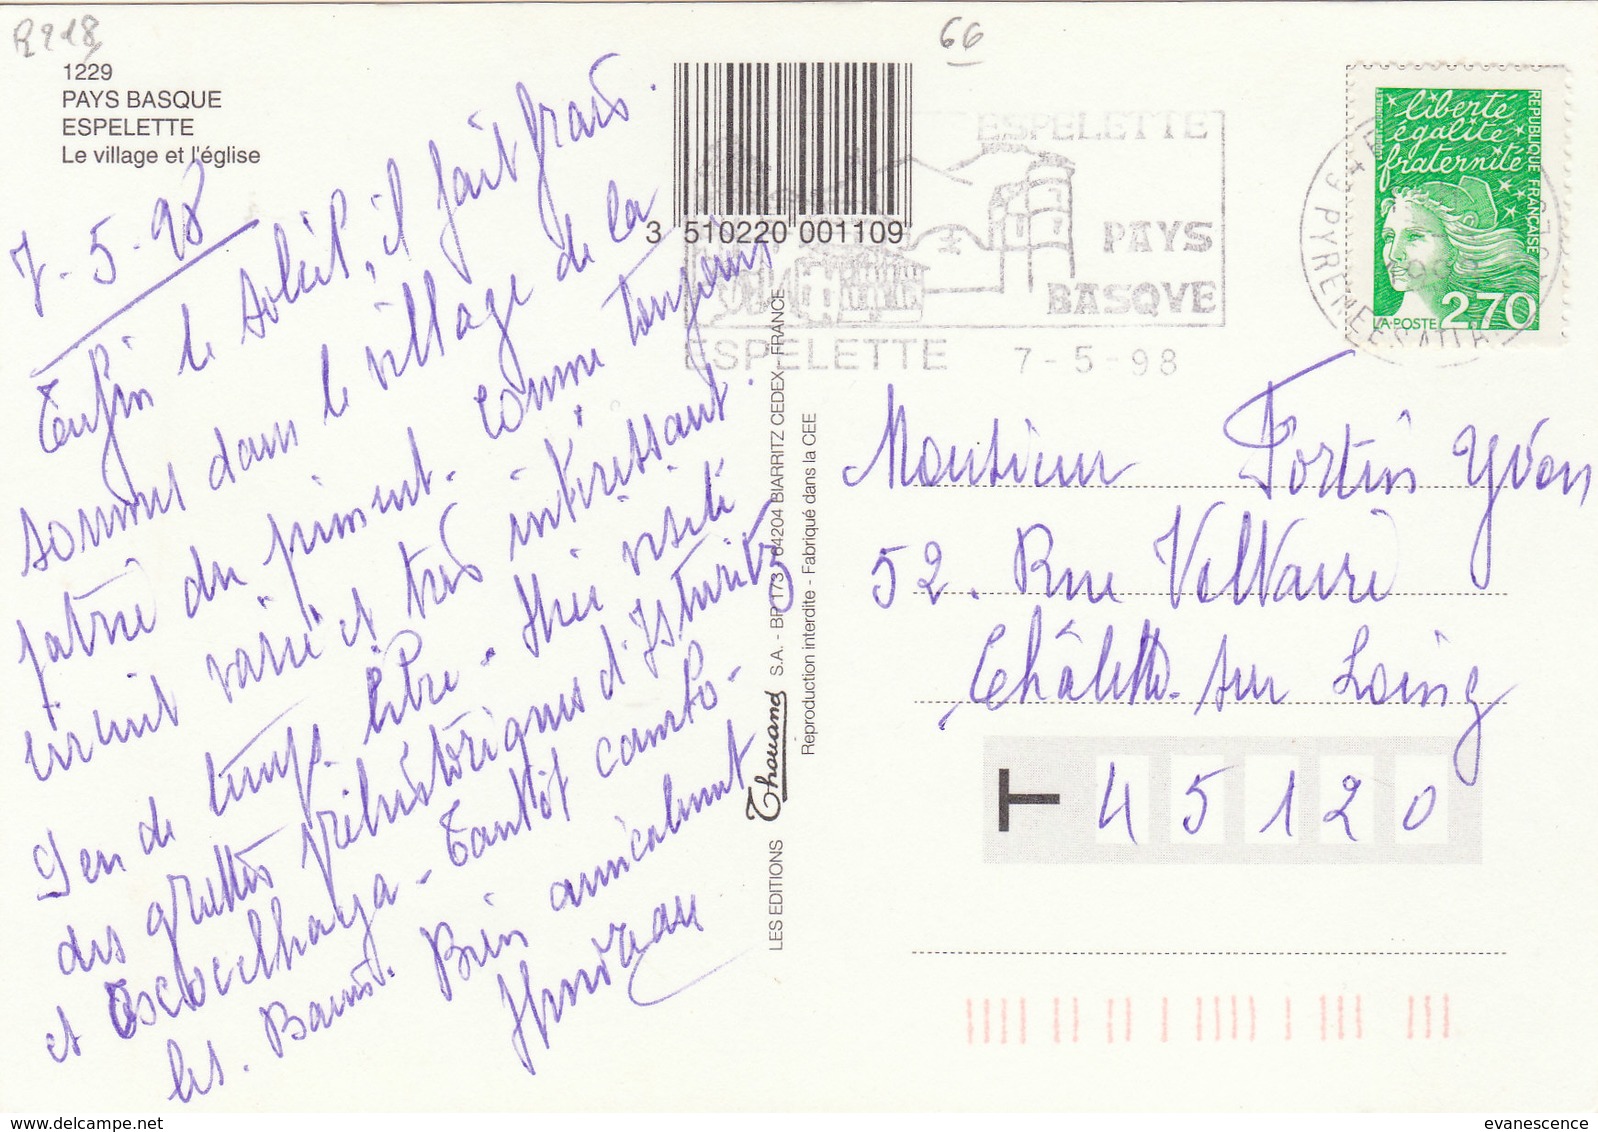 R218
66
1229
PAYS BASQUE
ESPELETTE
Le village et l'église
7-5-98
Enfin le soleil, il fait frais.
sommes dans le village de la
patrie du piment. Comme toujours
circuit varié et très intéressant.
Peu de temps libre - Hier visité
des grottes préhistoriques d'Isturitz
et Oxocelhaya - Tantôt Cambo-
les-Bains. Bien amicalement
3 510220 001109
LES EDITIONS Thouand S.A. - BP 173 - 64204 BIARRITZ CEDEX - FRANCE
Reproduction interdite - Fabriqué dans la CEE
ESPELETTE
PAYS
BASQVE
ESPELETTE 7-5-98
64 PYRENEES ATLA
liberté
égalité
fraternité
REPUBLIQUE FRANÇAISE
LA POSTE 2,70
Monsieur Fortin Yvon
52. Rue Voltaire
Châlette-sur Loing
T 45120
evanescence